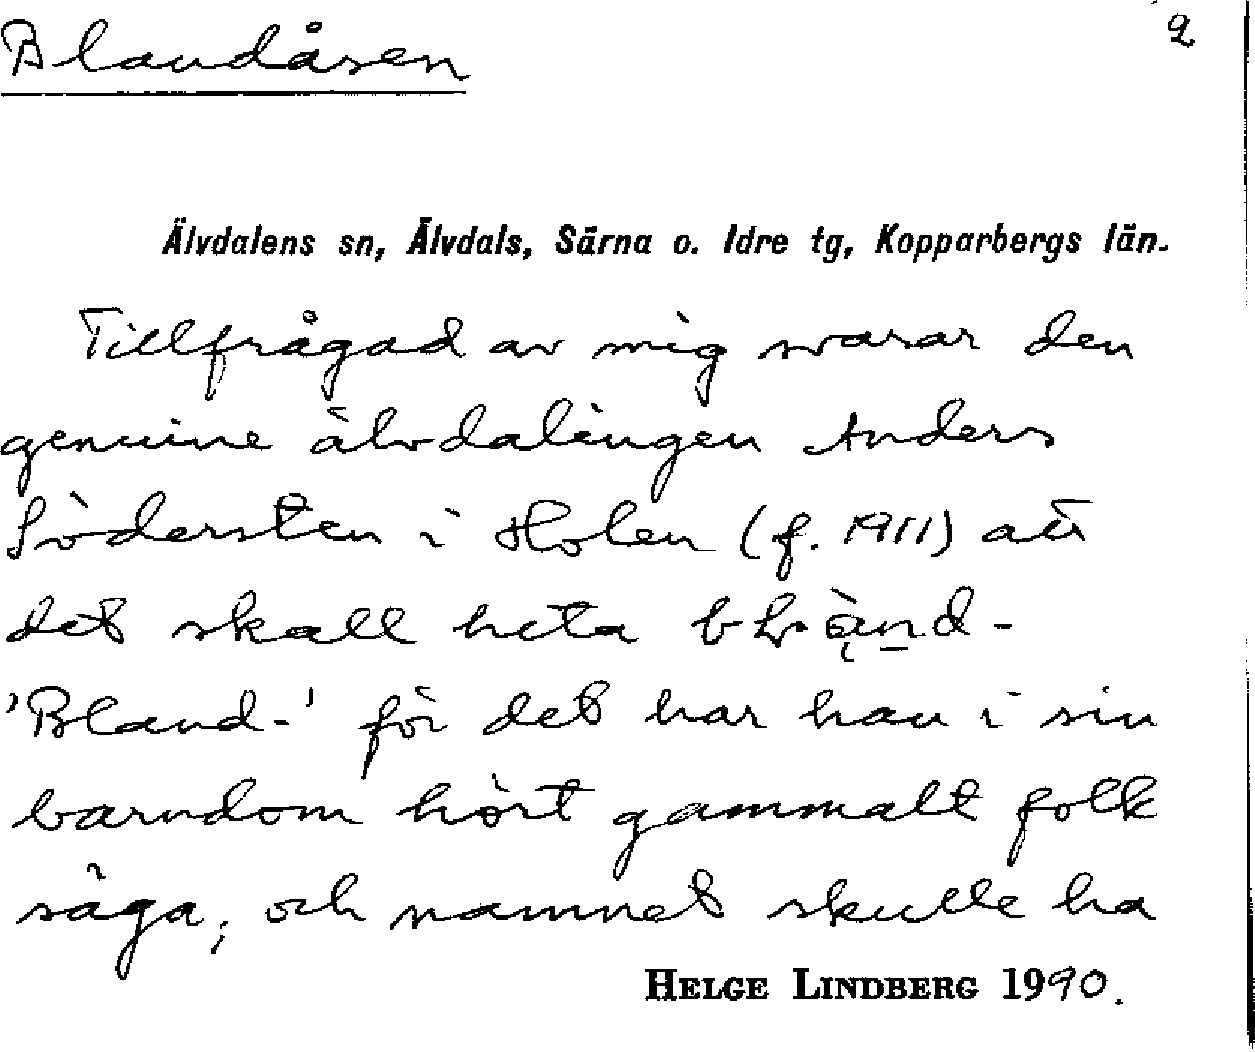 Blandåsen
2
Älvdalens sn, Älvdals, Särna o. Idre tg, Kopparbergs län.
Tillfrågad av mig svarar den
genuine älvdalingen Anders
Södersten i Holen (f. 1911) att
det skall heta
'Bland-' för det har han i sin
barndom hört gammalt folk
säga, och namnet skulle ha
HELGE LINDBERG 1990.